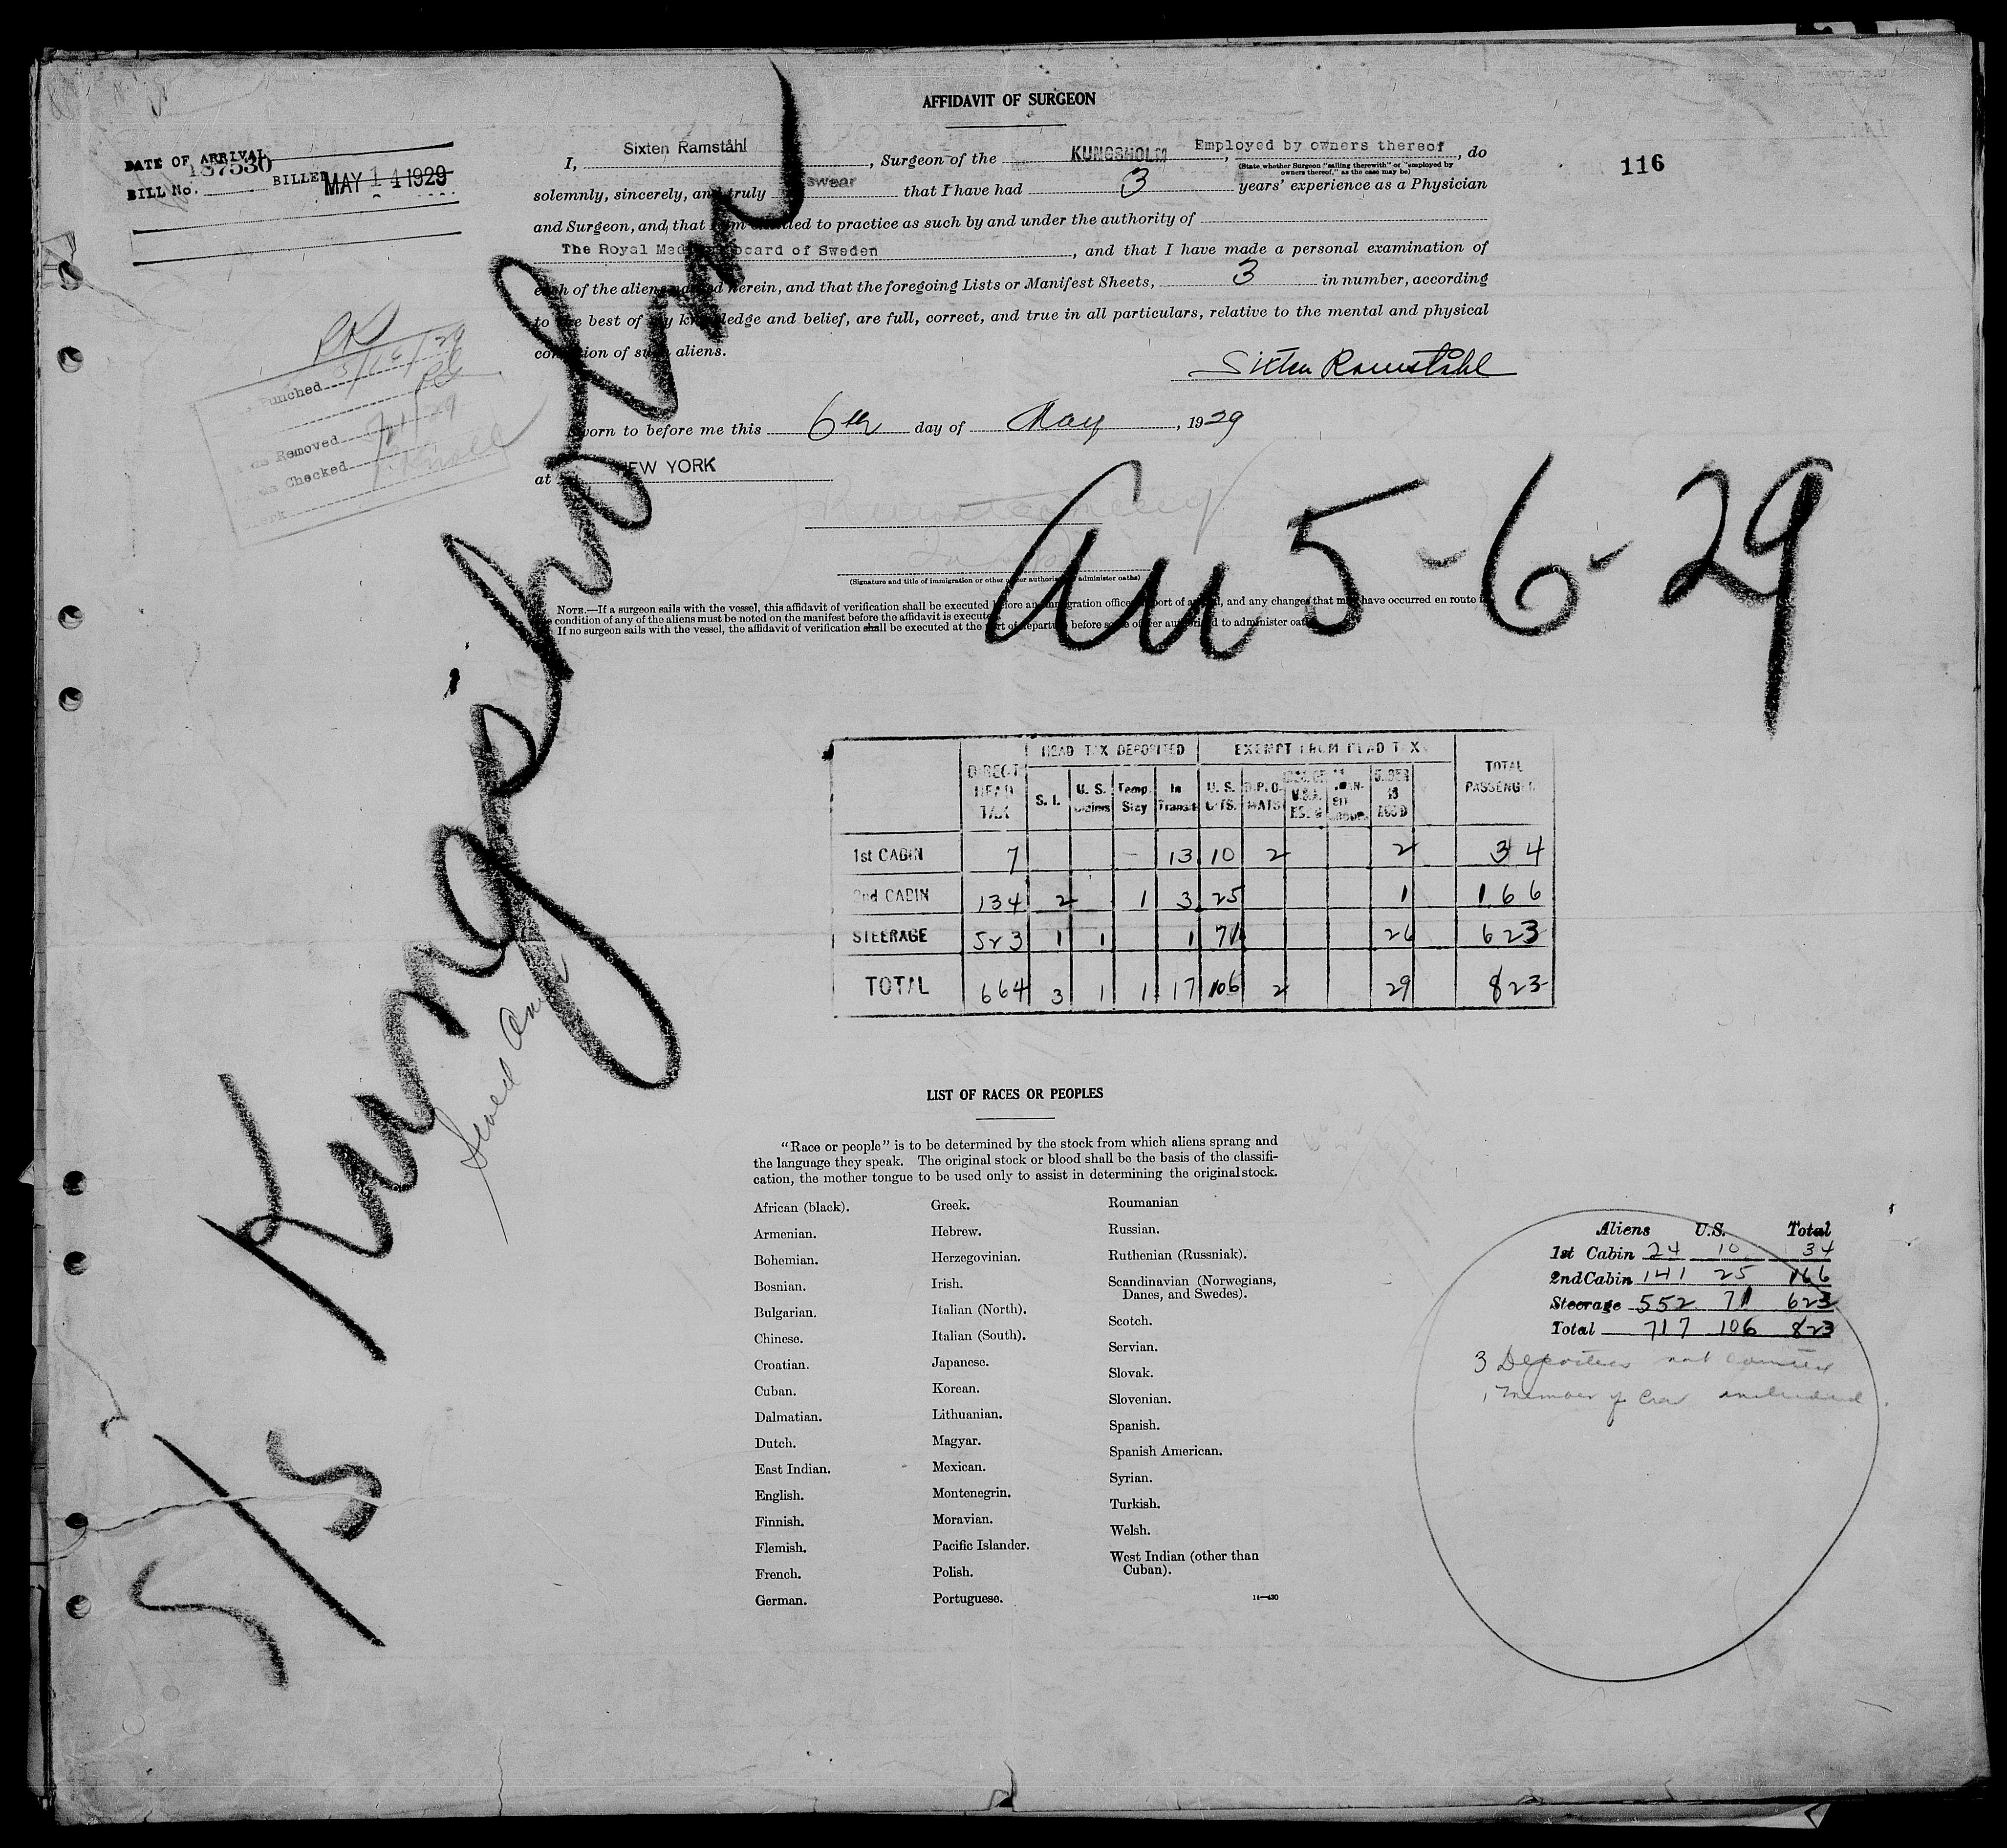 AFFIDAVIT OF SURGEON
116
DATE OF ARRIVAL
187530
BILL No. BILLED MAY 14 1929
I, Sixten Ramståhl, Surgeon of the KUNGSHOLM, Employed by owners thereof, do
(State whether Surgeon "sailing therewith" or "employed by
owners thereof," as the case may be)
solemnly, sincerely, and truly swear that I have had 3 years' experience as a Physician
and Surgeon, and that I am entitled to practice as such by and under the authority of
The Royal Med board of Sweden, and that I have made a personal examination of
each of the aliens named herein, and that the foregoing Lists or Manifest Sheets, 3 in number, according
to the best of my knowledge and belief, are full, correct, and true in all particulars, relative to the mental and physical
condition of such aliens.
Sixten Ramståhl
Sworn to before me this 6th day of May, 1929
at NEW YORK
(Signature and title of immigration or other officer authorized to administer oaths)
Punched
Removed
Checked
Clerk
Kungsholm
5/5
5-6-29
NOTE.—If a surgeon sails with the vessel, this affidavit of verification shall be executed before an immigration officer port of arrival, and any changes that may have occurred en route
condition of any of the aliens must be noted on the manifest before the affidavit is executed
If no surgeon sails with the vessel, the affidavit of verification shall be executed at the port of departure before some officer authorized to administer oaths
DIRECT HEAD TAX HEAD TAX DEPOSITED EXEMPT FROM HEAD TAX TOTAL PASSENGER
S. I. U. S. Claims Temp. Stay In Transit U. S. CITS. DIPLOMATS UNDER 16 ACC'D
1st CABIN 7 - 13 10 2 2 34
2nd CABIN 134 2 1 3 25 1 166
STEERAGE 523 1 1 1 71 26 623
TOTAL 664 3 1 1 17 106 2 29 823
LIST OF RACES OR PEOPLES
"Race or people" is to be determined by the stock from which aliens sprang and
the language they speak. The original stock or blood shall be the basis of the classifi-
cation, the mother tongue to be used only to assist in determining the original stock.
African (black).
Armenian.
Bohemian.
Bosnian.
Bulgarian.
Chinese.
Croatian.
Cuban.
Dalmatian.
Dutch.
East Indian.
English.
Finnish.
Flemish.
French.
German.
Greek.
Hebrew.
Herzegovinian.
Irish.
Italian (North).
Italian (South).
Japanese.
Korean.
Lithuanian.
Magyar.
Mexican.
Montenegrin.
Moravian.
Pacific Islander.
Polish.
Portuguese.
Roumanian
Russian.
Ruthenian (Russniak).
Scandinavian (Norwegians,
Danes, and Swedes).
Scotch.
Servian.
Slovak.
Slovenian.
Spanish.
Spanish American.
Syrian.
Turkish.
Welsh.
West Indian (other than
Cuban).
14—430
Aliens U.S. Total
1st Cabin 24 10 34
2nd Cabin 141 25 166
Steerage 552 71 623
Total 717 106 823
3 not
1 member of included